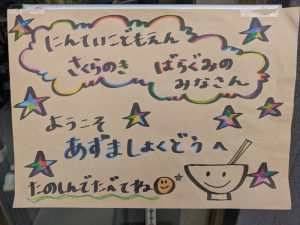 にんていこどもえん
さくらのき　ばらぐみの
みなさん
ようこそ
あずましょくどうへ
たのしんでたべてね